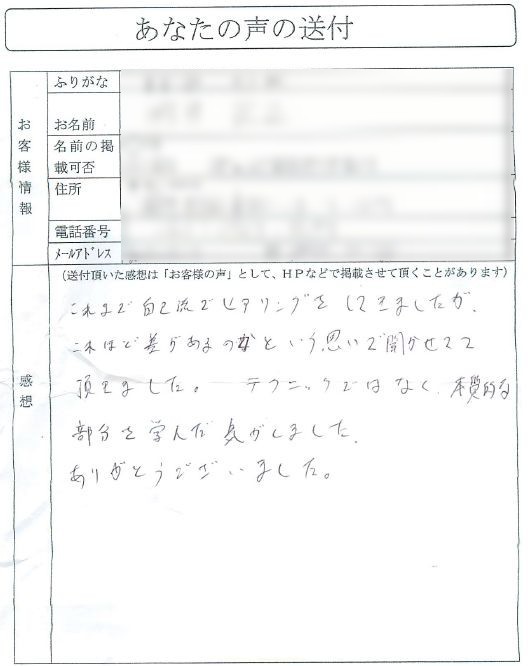 あなたの声の送付
お客様情報
ふりがな
お名前
名前の掲
載可否
住所
電話番号
メールアドレス
感想
(送付頂いた感想は「お客様の声」として、HPなどで掲載させて頂くことがあります)
これまで自己流でヒアリングをしてきましたが、
これほど差があるのかという思いで聞かせて
頂きました。 テクニックではなく、本質的な
部分を学んだ気がしました。
ありがとうございました。